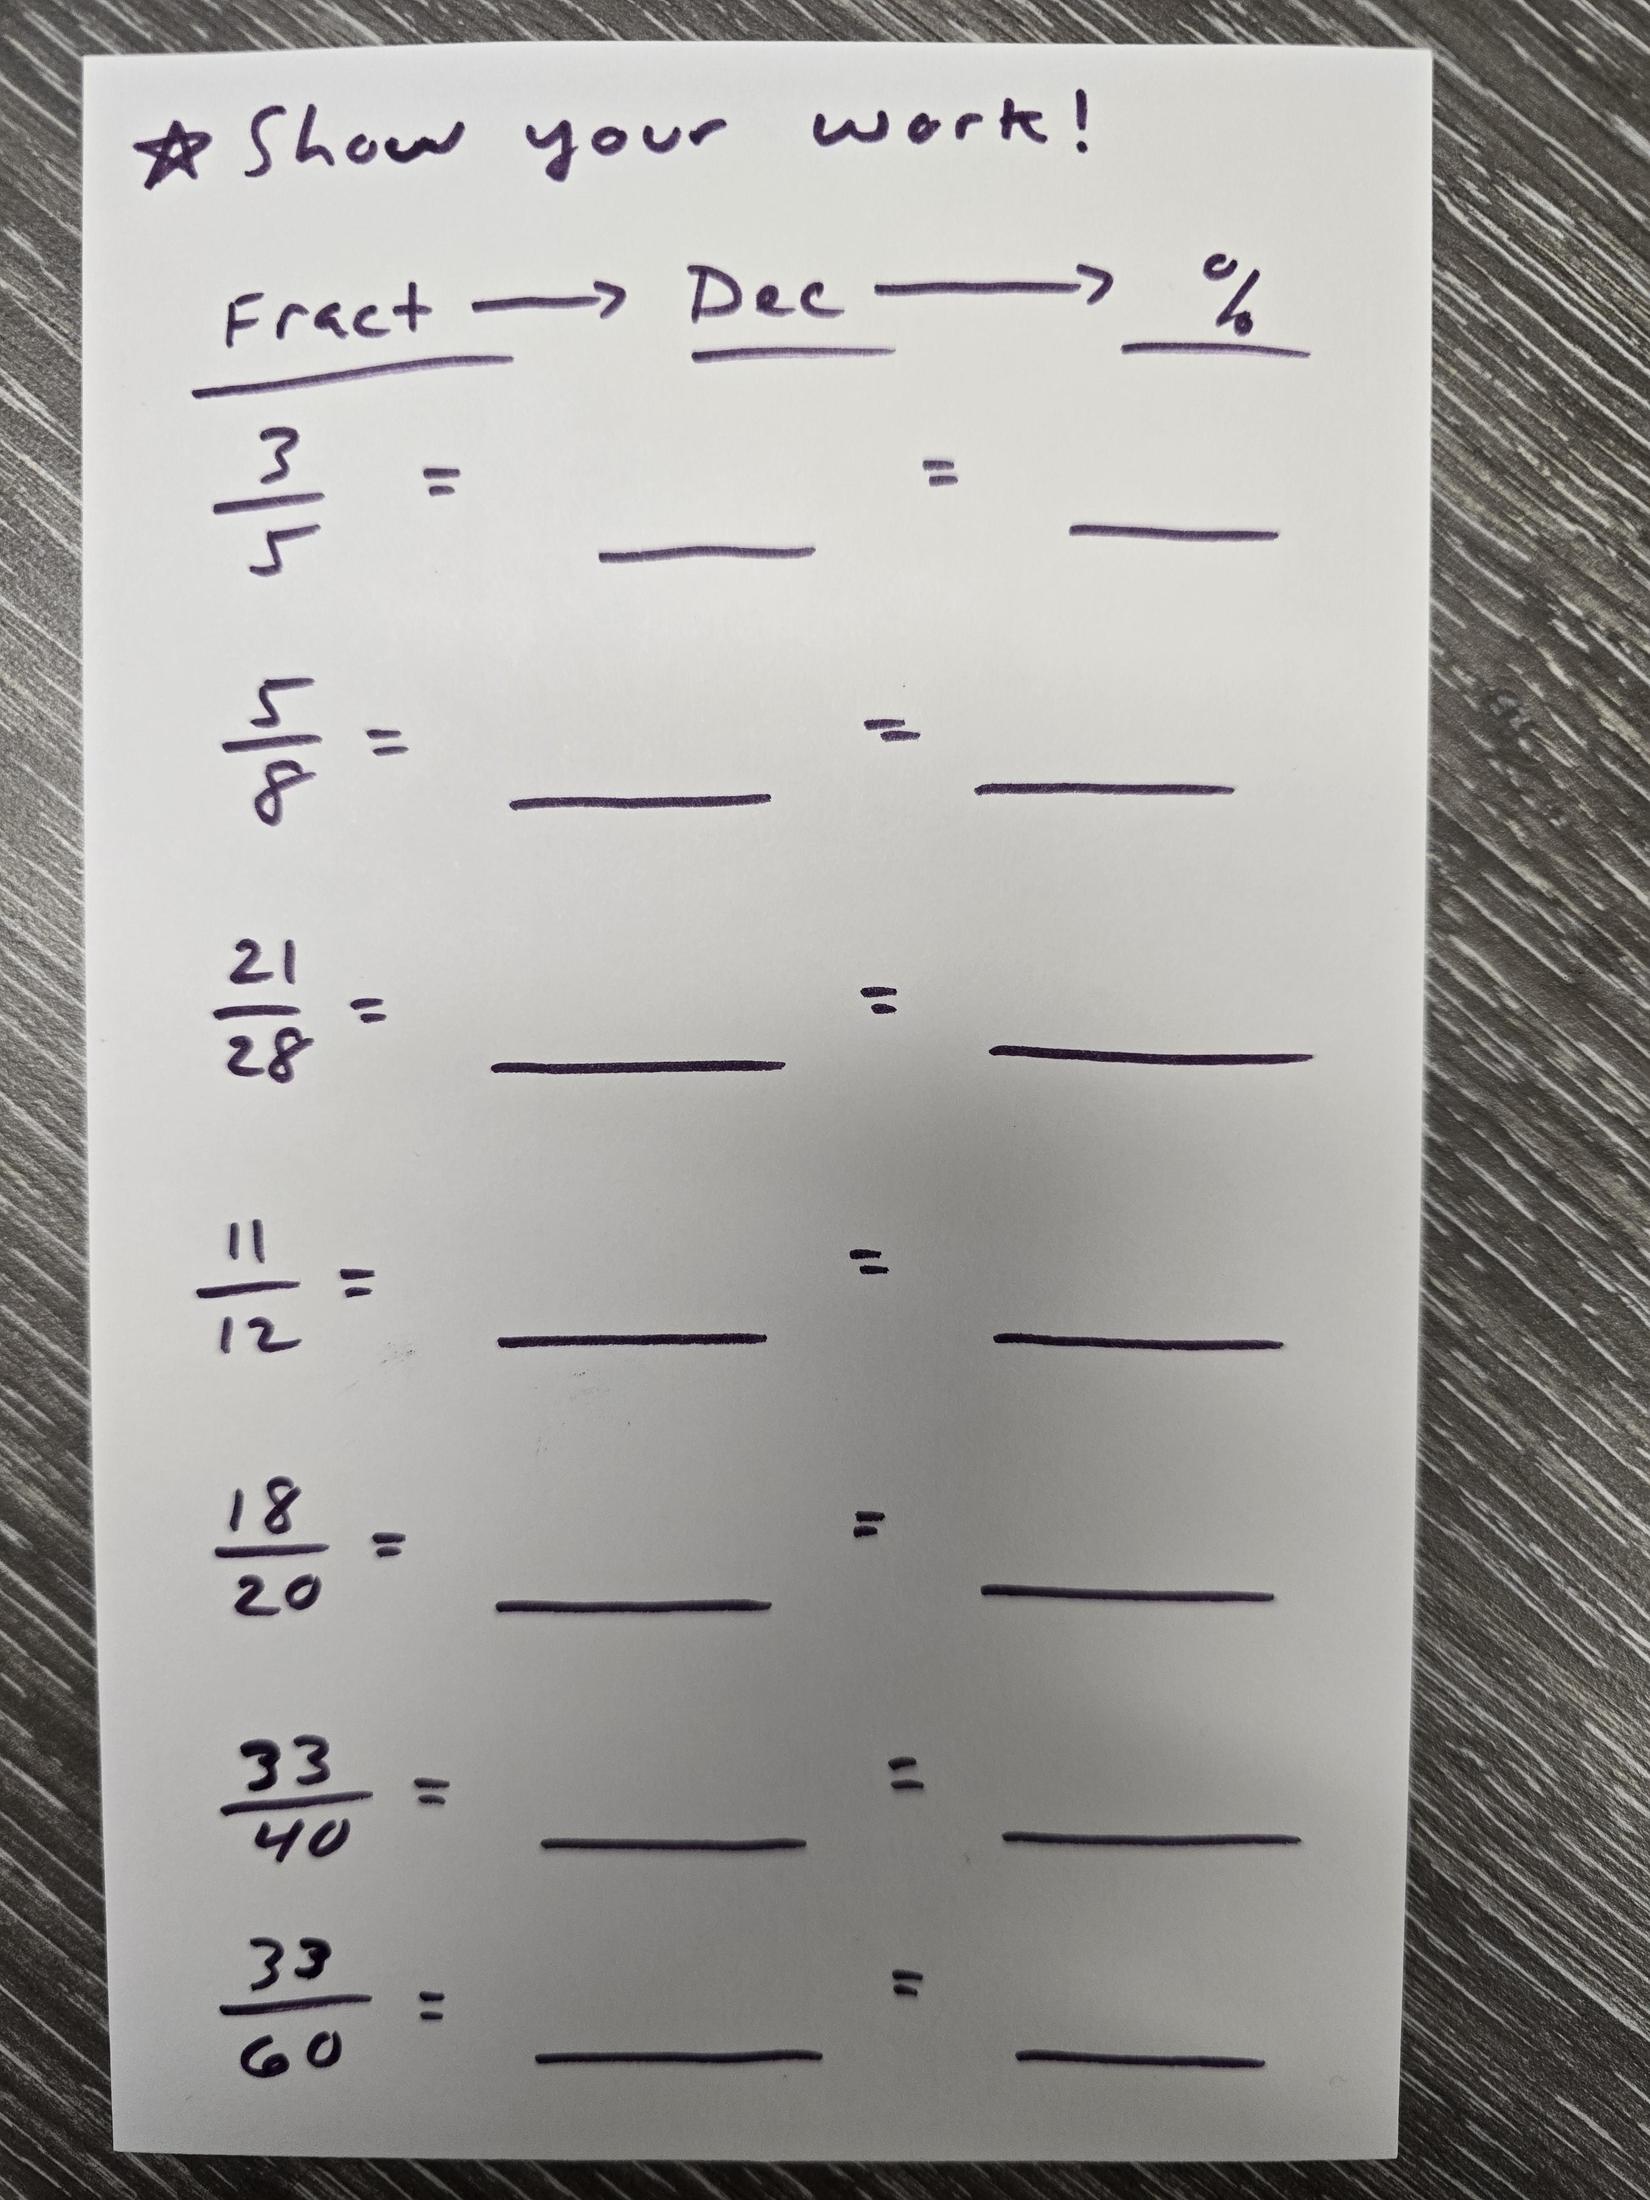 ☆ Show your work!
Fract → Dec → %
3/5 = ____ = ____
5/8 = ____ = ____
21/28 = ____ = ____
11/12 = ____ = ____
18/20 = ____ = ____
33/40 = ____ = ____
33/60 = ____ = ____